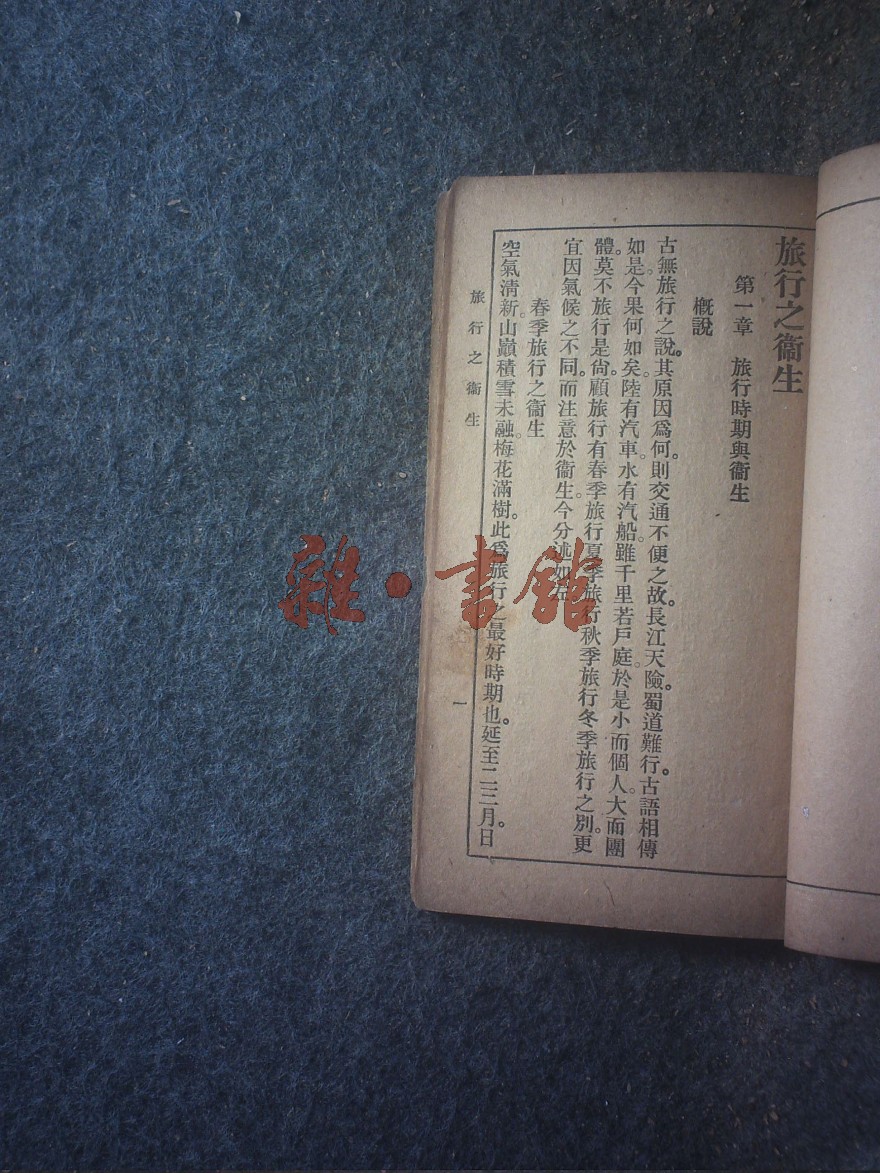 旅行之衞生
第一章　旅行時期與衞生
概說
古無旅行之說。其原因爲何。則交通不便之故。長江天險。蜀道難行。古語相傳
如是。今果何如矣。陸有汽車。水有汽船。雖千里若戶庭。於是小而個人。大而團
體。莫不旅行是尙。顧旅行有春季旅行夏季旅行秋季旅行冬季旅行之別。更
宜因氣候之不同。而注意於衞生。今分述如左
春季旅行之衞生
空氣清新。山巓積雪未融。梅花滿樹。此爲旅行之最好時期也。延至二三月。日
旅行之衞生
一
雜·書館